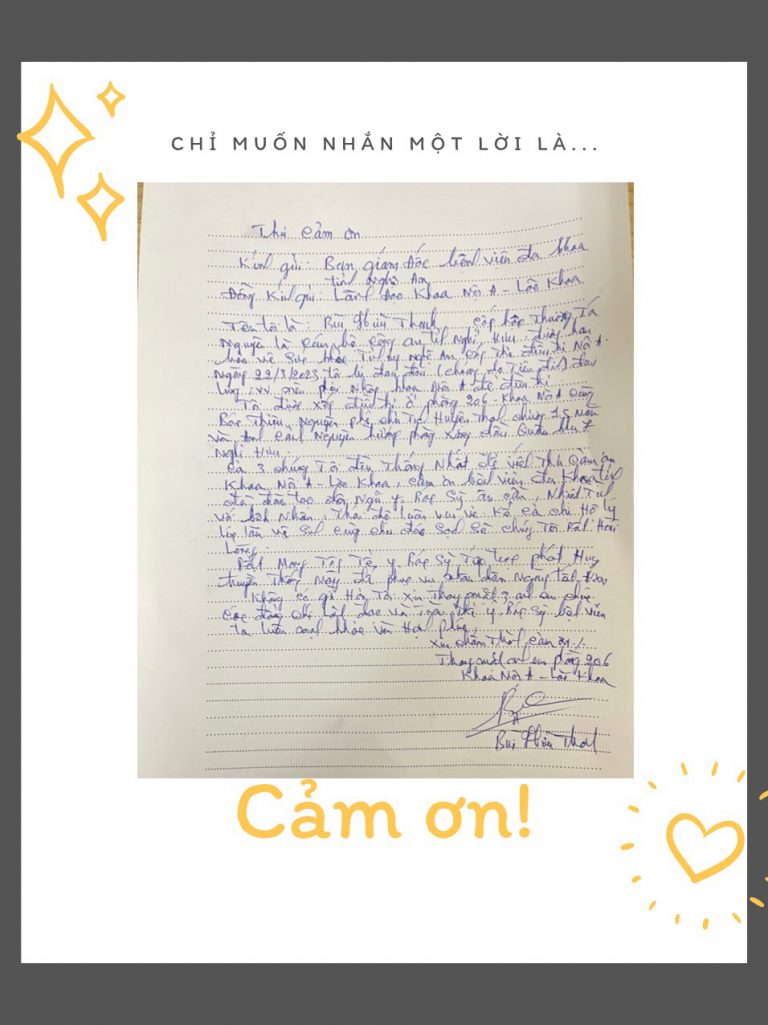 CHỈ MUỐN NHẮN MỘT LỜI LÀ...
Thư cảm ơn
Kính gửi: Ban giám đốc bệnh viện đa khoa
tỉnh Nghệ An
Đồng Kính gửi: Lãnh đạo Khoa Nội A - Lão Khoa
Tên tôi là: Bùi Hữu Thanh, cấp bậc Thượng Tá
Nguyên là cán bộ công an tỉnh Nghị Hưu, được ban
bảo vệ sức khỏe Tỉnh ủy Nghệ An cấp thẻ điều trị Nội A.
Ngày 22/3/2023 tôi bị đau đầu
lưng :vv nên phải nhập khoa Nội A để điều trị
Tôi được xếp điều trị ở phòng 206 - Khoa Nội A cùng
Bác Thiều, Nguyên phó chủ tịch Huyện
và Anh Nguyên trưởng phòng xăng dầu Quân khu 4
Nghỉ Hưu.
Cả 3 chúng Tôi đều Thống Nhất để viết Thư Cảm ơn
Khoa Nội A - Lão Khoa, cảm ơn bệnh viện đa khoa tỉnh
đã đào tạo đội Ngũ y, Bác Sỹ ân cần, Nhiệt Tình
với bệnh Nhân, Thái độ luôn vui vẻ kể cả chị Hộ lý
cũng chu đáo Sạch Sẽ chúng Tôi Rất Hài
Lòng.
Rất Mong Tập Thể y, Bác Sỹ Tiếp Tục phát Huy
truyền Thống Này để phục vụ nhân dân Ngày tốt hơn
Không có gì Hơn Tôi Xin Thay mặt 3 anh em chúc
các đồng chí lãnh đạo và Toàn Thể y, Bác Sỹ bệnh viện
ta luôn mạnh khỏe và Hạnh phúc.
Xin chân Thành cảm ơn ./.
Thay mặt anh em phòng 206
Khoa Nội A - Lão Khoa
Bùi Hữu Thanh
Cảm ơn!